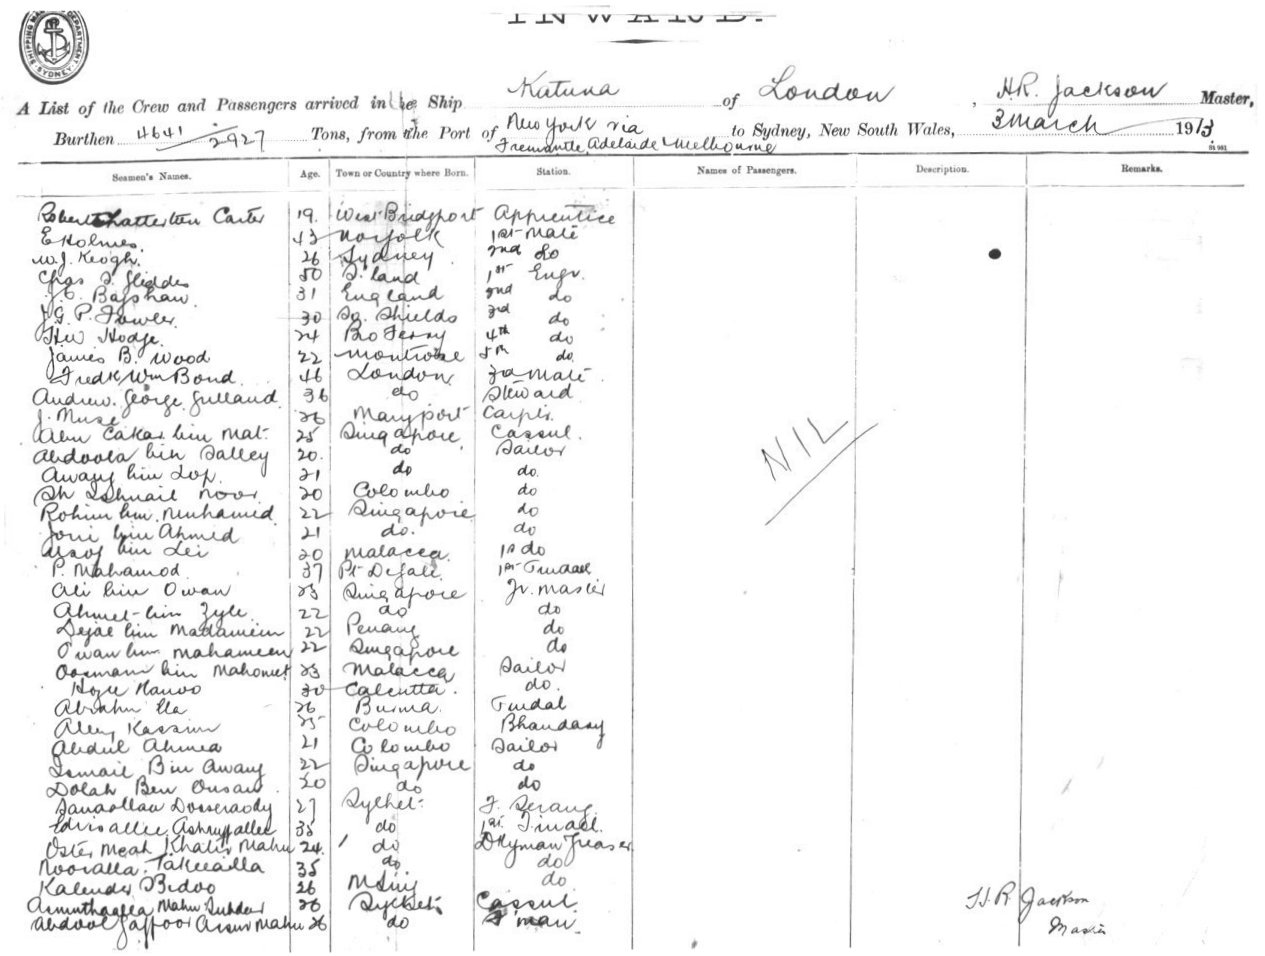 SHIPPING MASTER'S DEPARTMENT SYDNEY
INWARD.
A List of the Crew and Passengers arrived in the Ship Katuna of London, H.R. Jackson Master,
Burthen 4641/2927 Tons, from the Port of New York via Fremantle, Adelaide & Melbourne to Sydney, New South Wales, 3 March 1913
Seamen's Names. Age. Town or Country where Born. Station. Names of Passengers. Description. Remarks.
Robert Chatterton Carter 19. West Bridgport Apprentice
E Holmes. 43 Norfolk 1st Mate
W.J. Keogh. 26 Sydney 2nd Do
Chas S. Geddes 50 S.land 1st Engr.
Bagshaw 31 England 2nd do
J.G.P. Fowler 30 So. Shields 3rd do
H.W Hodge. 24 Bro Ferry 4th do
James B. Wood 22 Montrose 5th do
Fredk Wm Bond 46 London 3rd Mate
Andrew George Gulland 36 do Steward
J. Muse 26 Maryport Carptr.
Abu Cakar bin Mat. 25 Singapore Cassul.
Abdoola bin Salley 20. do Sailor
Awang bin Lop. 21 do do.
Sh Ishmail Noor 20 Colombo do
Rohim bin Muhamed 22 Singapore do
Joni bin Ahmed 21 do. do
bin Lei 20 Malacca. do
P. Mahamod 37 Pt 1st Tindall
Ali bin Owan Singapore Qr. Master
Ahmet bin Zyle 22 do do
Dejal bin Madamein 22 Penang do
Owan bin Mahameen 22 Singapore do
Oosman bin Mahomet 23 Malacca Sailor
30 Calcutta. do.
Abrahm 26 Burma. Tindal
Alley Kassim 25 Colombo Bhandary
Abdul Ahmed 21 Colombo Sailor
Ismail Bin Awang 22 Singapore do
Dolah Ben Ousan 20 do do
Sanaollau Dosseraody 27 Sylhet F. Serang
Edrisallee Ashruffallee 35 do 1st Tindal.
Oster Meah Khalir Mahu 24. do Dkyman Greaser
Nooralla Takecalla 35 do. do
Kalender Bidoo 26 do
Mahu 26 Sylhet Cassul
Abdool Gaffoor Mahu 26 do F'man.
NIL
H.R. Jackson
Master